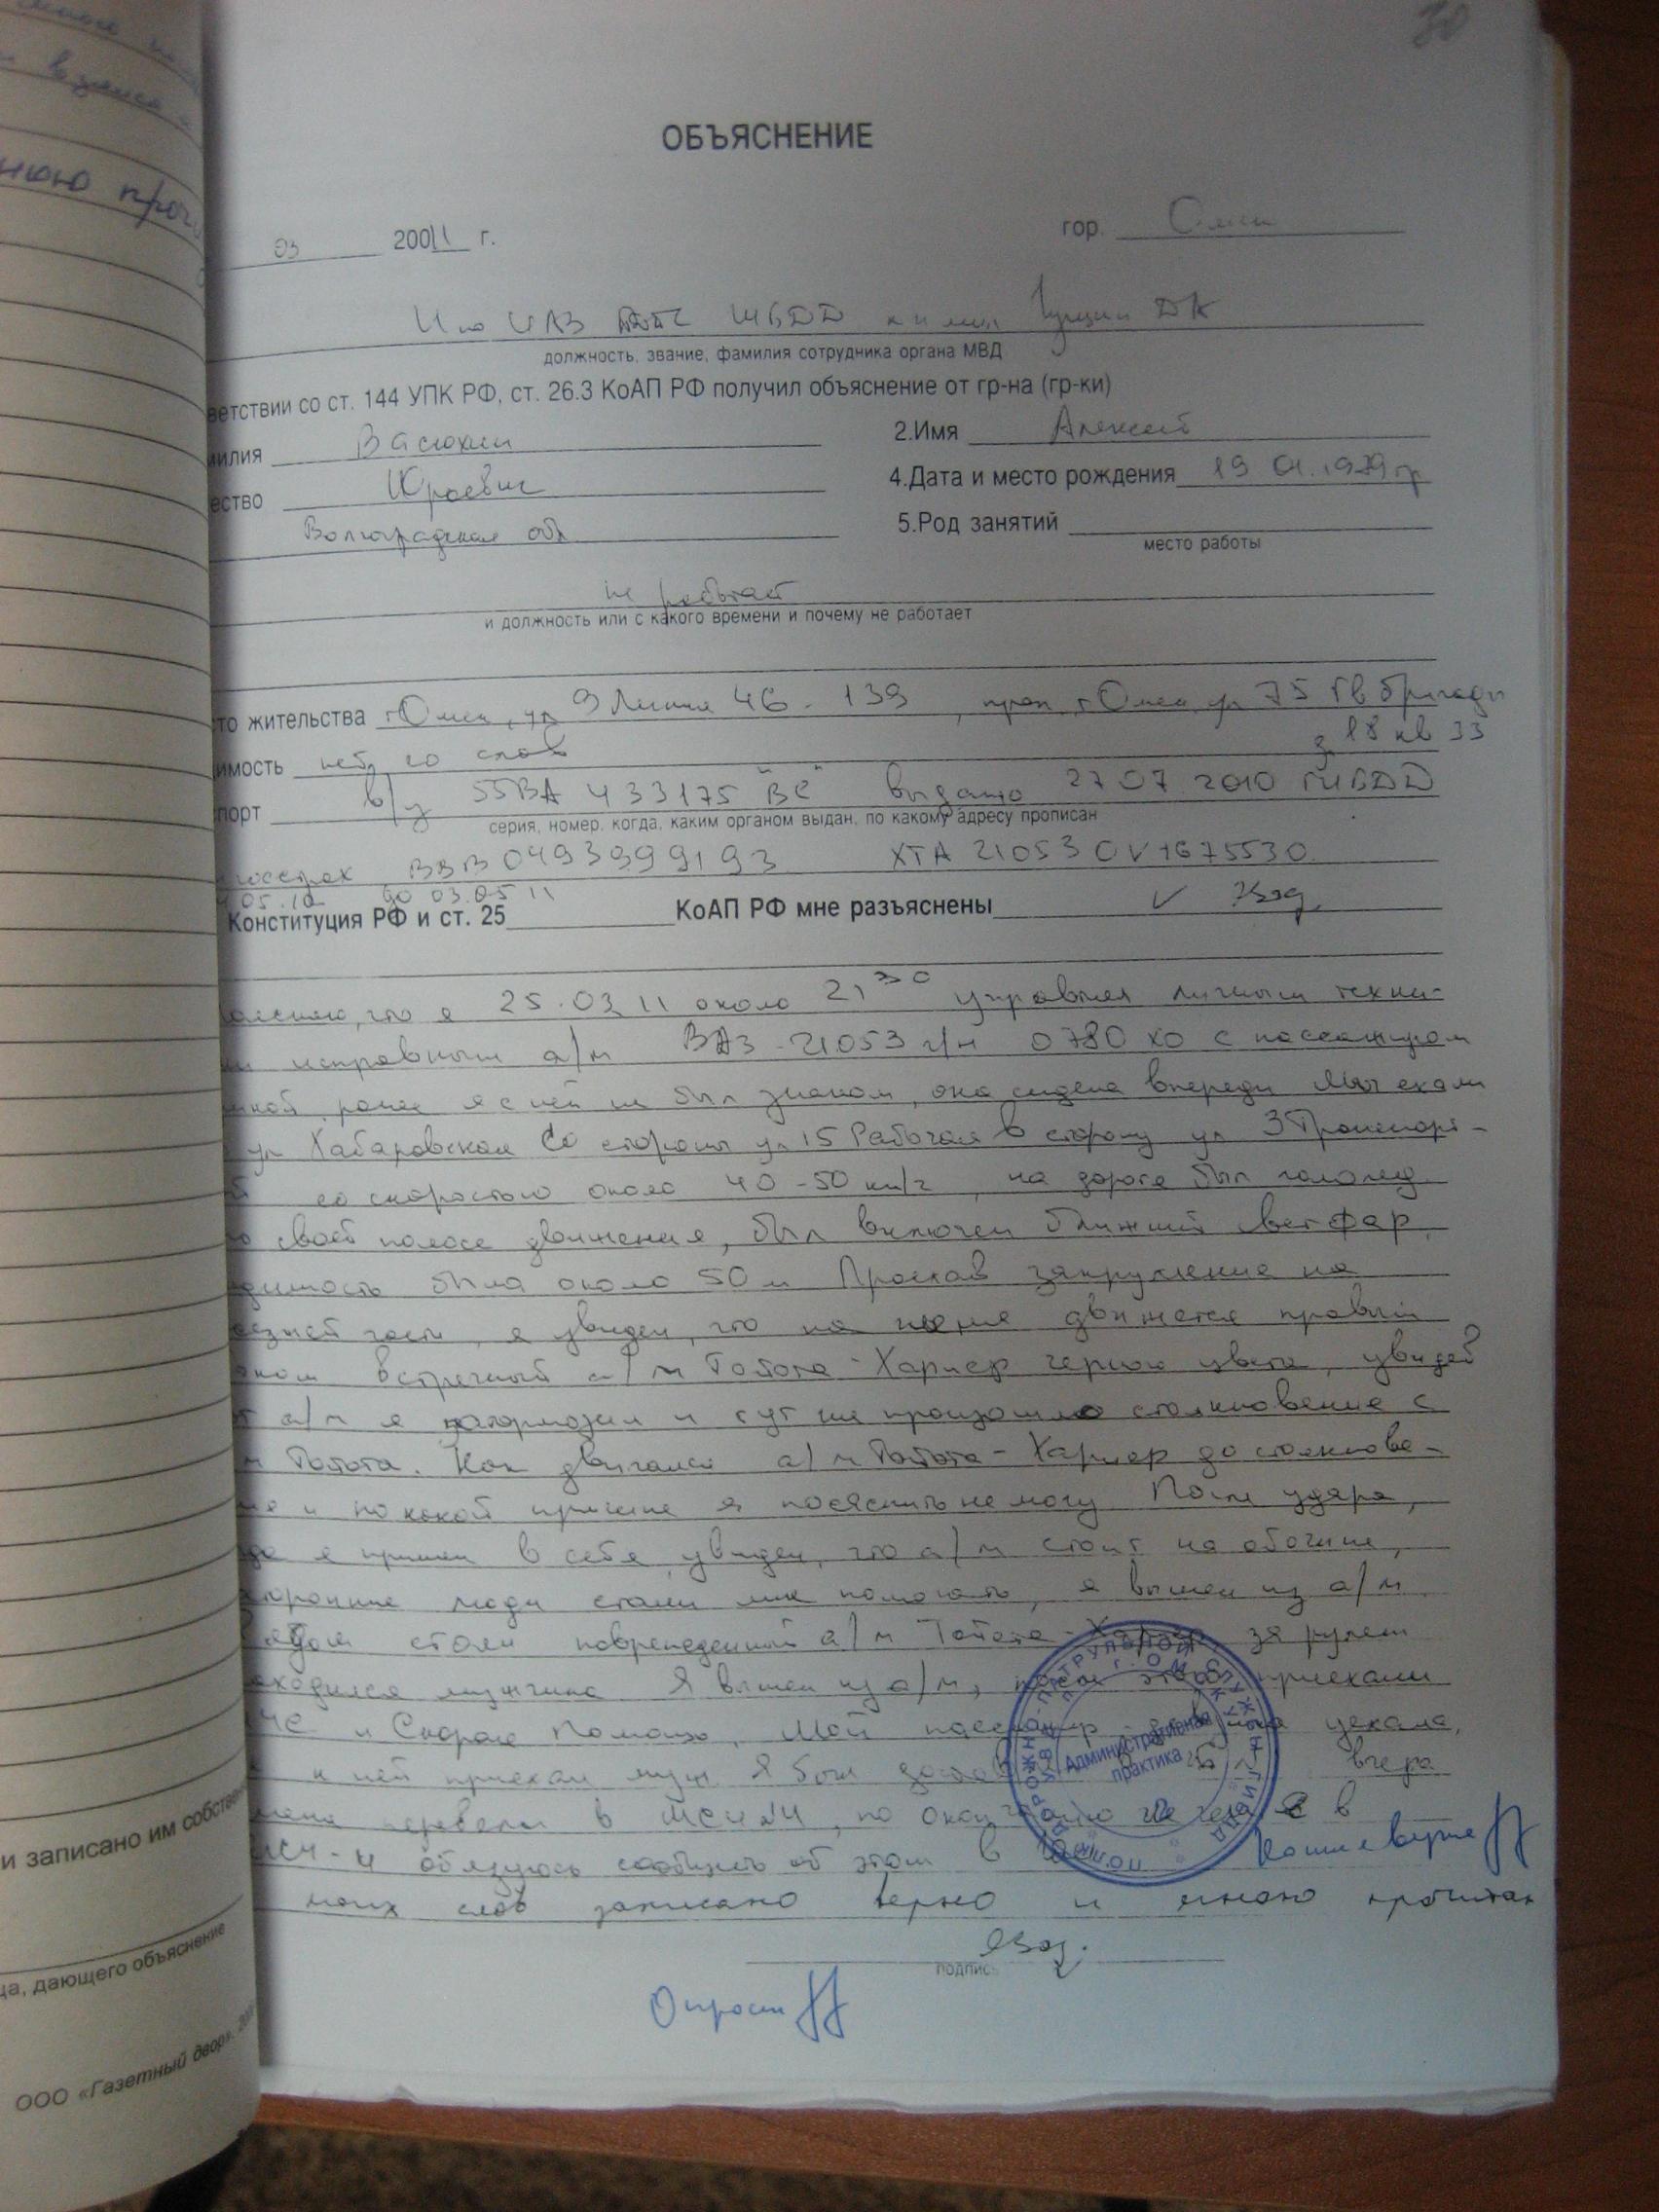 30
ОБЪЯСНЕНИЕ
03 200 11 г. гор. Омск
должность, звание, фамилия сотрудника органа МВД
ветствии со ст. 144 УПК РФ, ст. 26.3 КоАП РФ получил объяснение от гр-на (гр-ки)
милия Васюхин 2.Имя Алексей
ество Юрьевич 4.Дата и место рождения 19 01.1979 гр
Волгоградская обл 5.Род занятий
место работы
не работает
и должность или с какого времени и почему не работает
то жительства г Омск, ул 9 Линия 46 - 139, проп. г Омск ул 75 Гв бригады
имость нет, со слов д 18 кв 33
порт в/у 55ВА 433175 "ВС" выдано 27 07 2010 ГИБДД
серия, номер, когда, каким органом выдан, по какому адресу прописан
госстрах ВВВ 0493999193 ХТА 210530V1675530
05.10 до 03.05 11
Конституция РФ и ст. 25 КоАП РФ мне разъяснены
что я 25.03 11 около 21 30 управлял личным техни-
исправным а/м ВАЗ-21053 г/н 0780 ХО с пассажиром
ранее я с ней не был знаком, она сидела впереди Мы ехали
ул Хабаровская со стороны ул 15 Рабочая в сторону ул 3 Транспорт-
й со скоростью около 40-50 км/г, на дороге был гололед
о своей полосе движения, был включен ближний свет фар,
димость была около 50 м Проехав закругление на
езжей части, я увидел, что на меня движется правым
оком встречный а/м Тойота-Хариер черного цвета, увидев
т а/м я затормозил и тут же произошло столкновение с
м Тойота. Как двигался а/м Тойота-Хариер до столкнове-
ия и по какой причине я пояснить не могу После удара,
да я пришел в себя, увидел, что а/м стоит на обочине,
торонние люди стали мне помогать, я вышел из а/м
Рядом стоял поврежденный а/м Тойота-Хариер за рулем
аходился мужчина Я вышел из а/м, после этого приехали
МЧС и Скорая помощь, Мой пассажир уехала,
к ней приехал муж Я был вчера
меня перевели в МСЧ №4, по окончанию лечения в
МСЧ-4 обязуюсь сообщить об этом в
моих слов записано верно и мною прочитан
подпись
Опросил
ДОРОЖНО-ПАТРУЛЬНОЙ СЛУЖБЫ ГИБДД
Административная
практика
нюю проч
и записано им собствен
ца, дающего объяснение
ООО «Газетный двор». 200